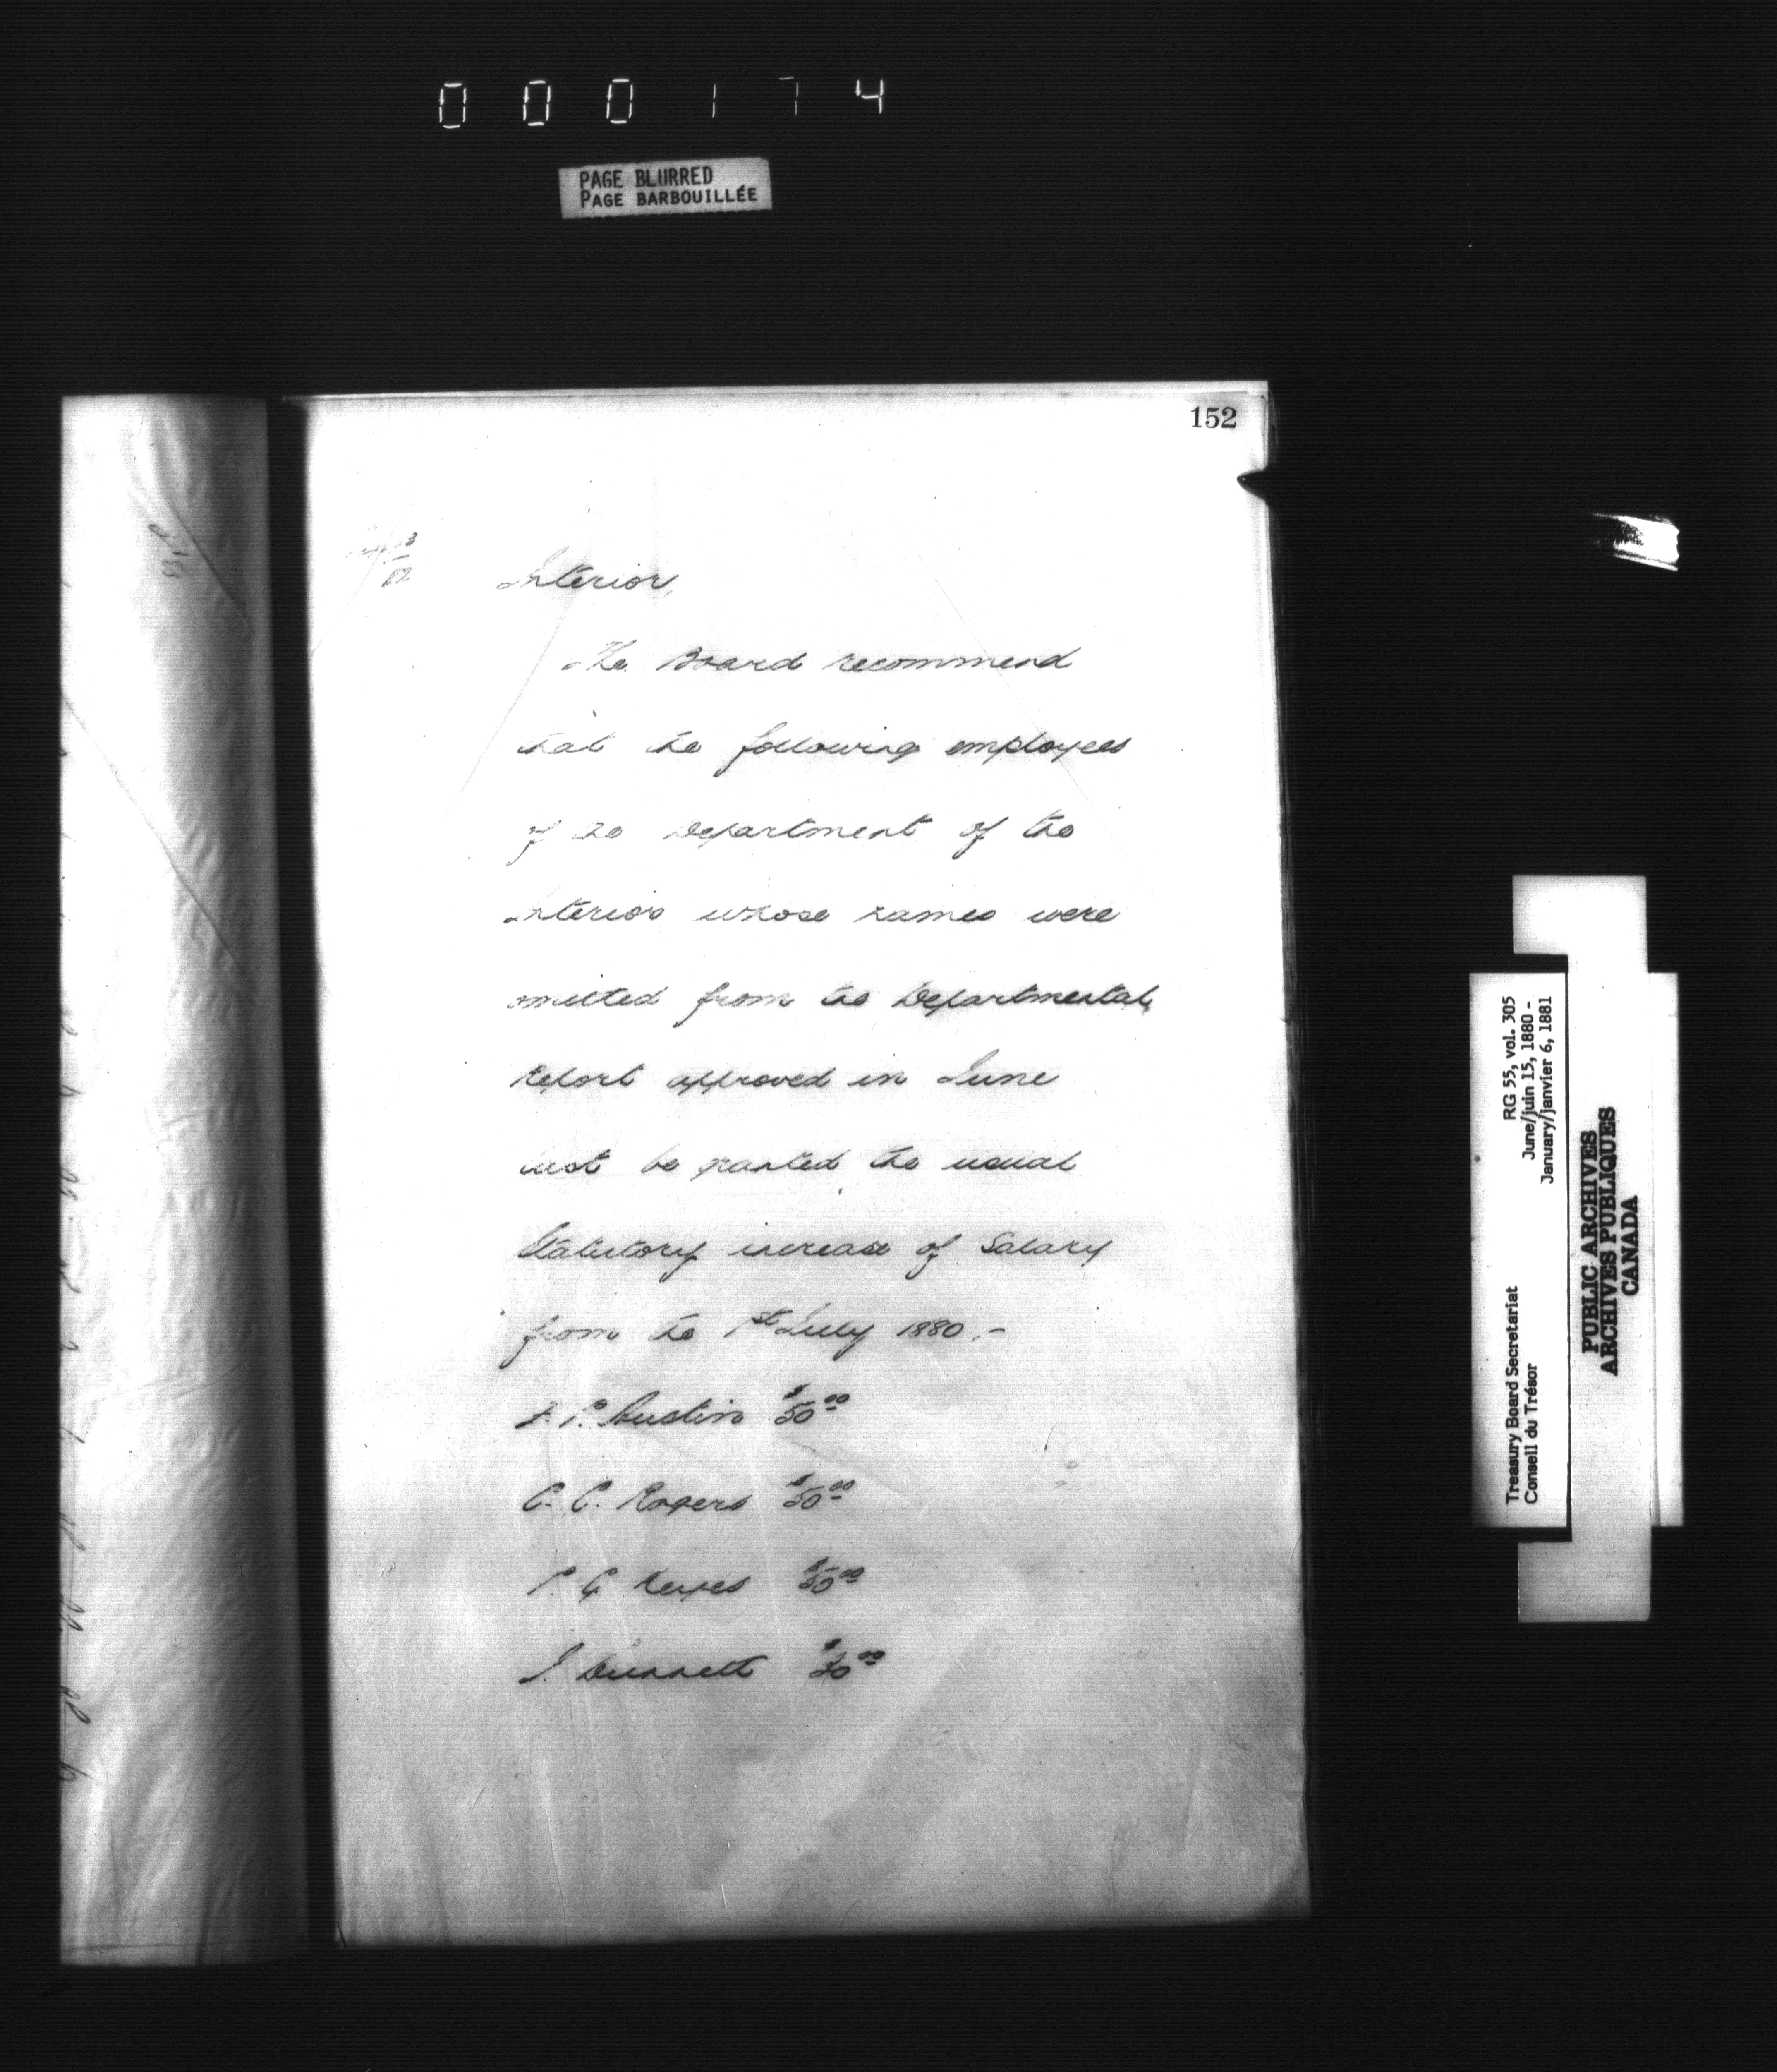 000174
PAGE BLURRED
PAGE BARBOUILLÉE
152
Interior,
The Board recommend
that the following employees
of the Department of the
Interior whose names were
omitted from the Departmental
Report approved in June
last be granted the usual
Statutory increase of Salary
from the 1st July 1880.-
P. Austin $50.00
C. C. Rogers $50.00
P. G Keyes $50.00
$30.00
RG 55, vol. 305
June/juin 15, 1880 -
January/janvier 6, 1881
Treasury Board Secretariat
Conseil du Trésor
PUBLIC ARCHIVES
ARCHIVES PUBLIQUES
CANADA